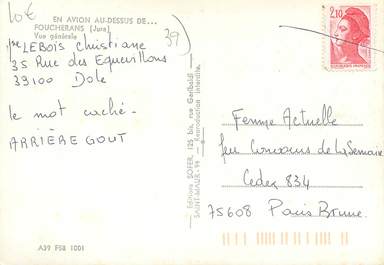 10€
EN AVION AU-DESSUS DE...
FOUCHERANS (Jura)
Vue générale
39
LEBOIS Christiane
35 Rue des Equevillons
39100 Dole
le mot caché -
ARRIÈRE GOUT
A39 F58 1001
Editions SOFER, 125 bis, rue Garibaldi
SAINT-MAUR-94 — Reproduction interdite.
2,10
Femme Actuelle
Jeu Concours de la Semaine
Cedex 834
75608 Paris Brune